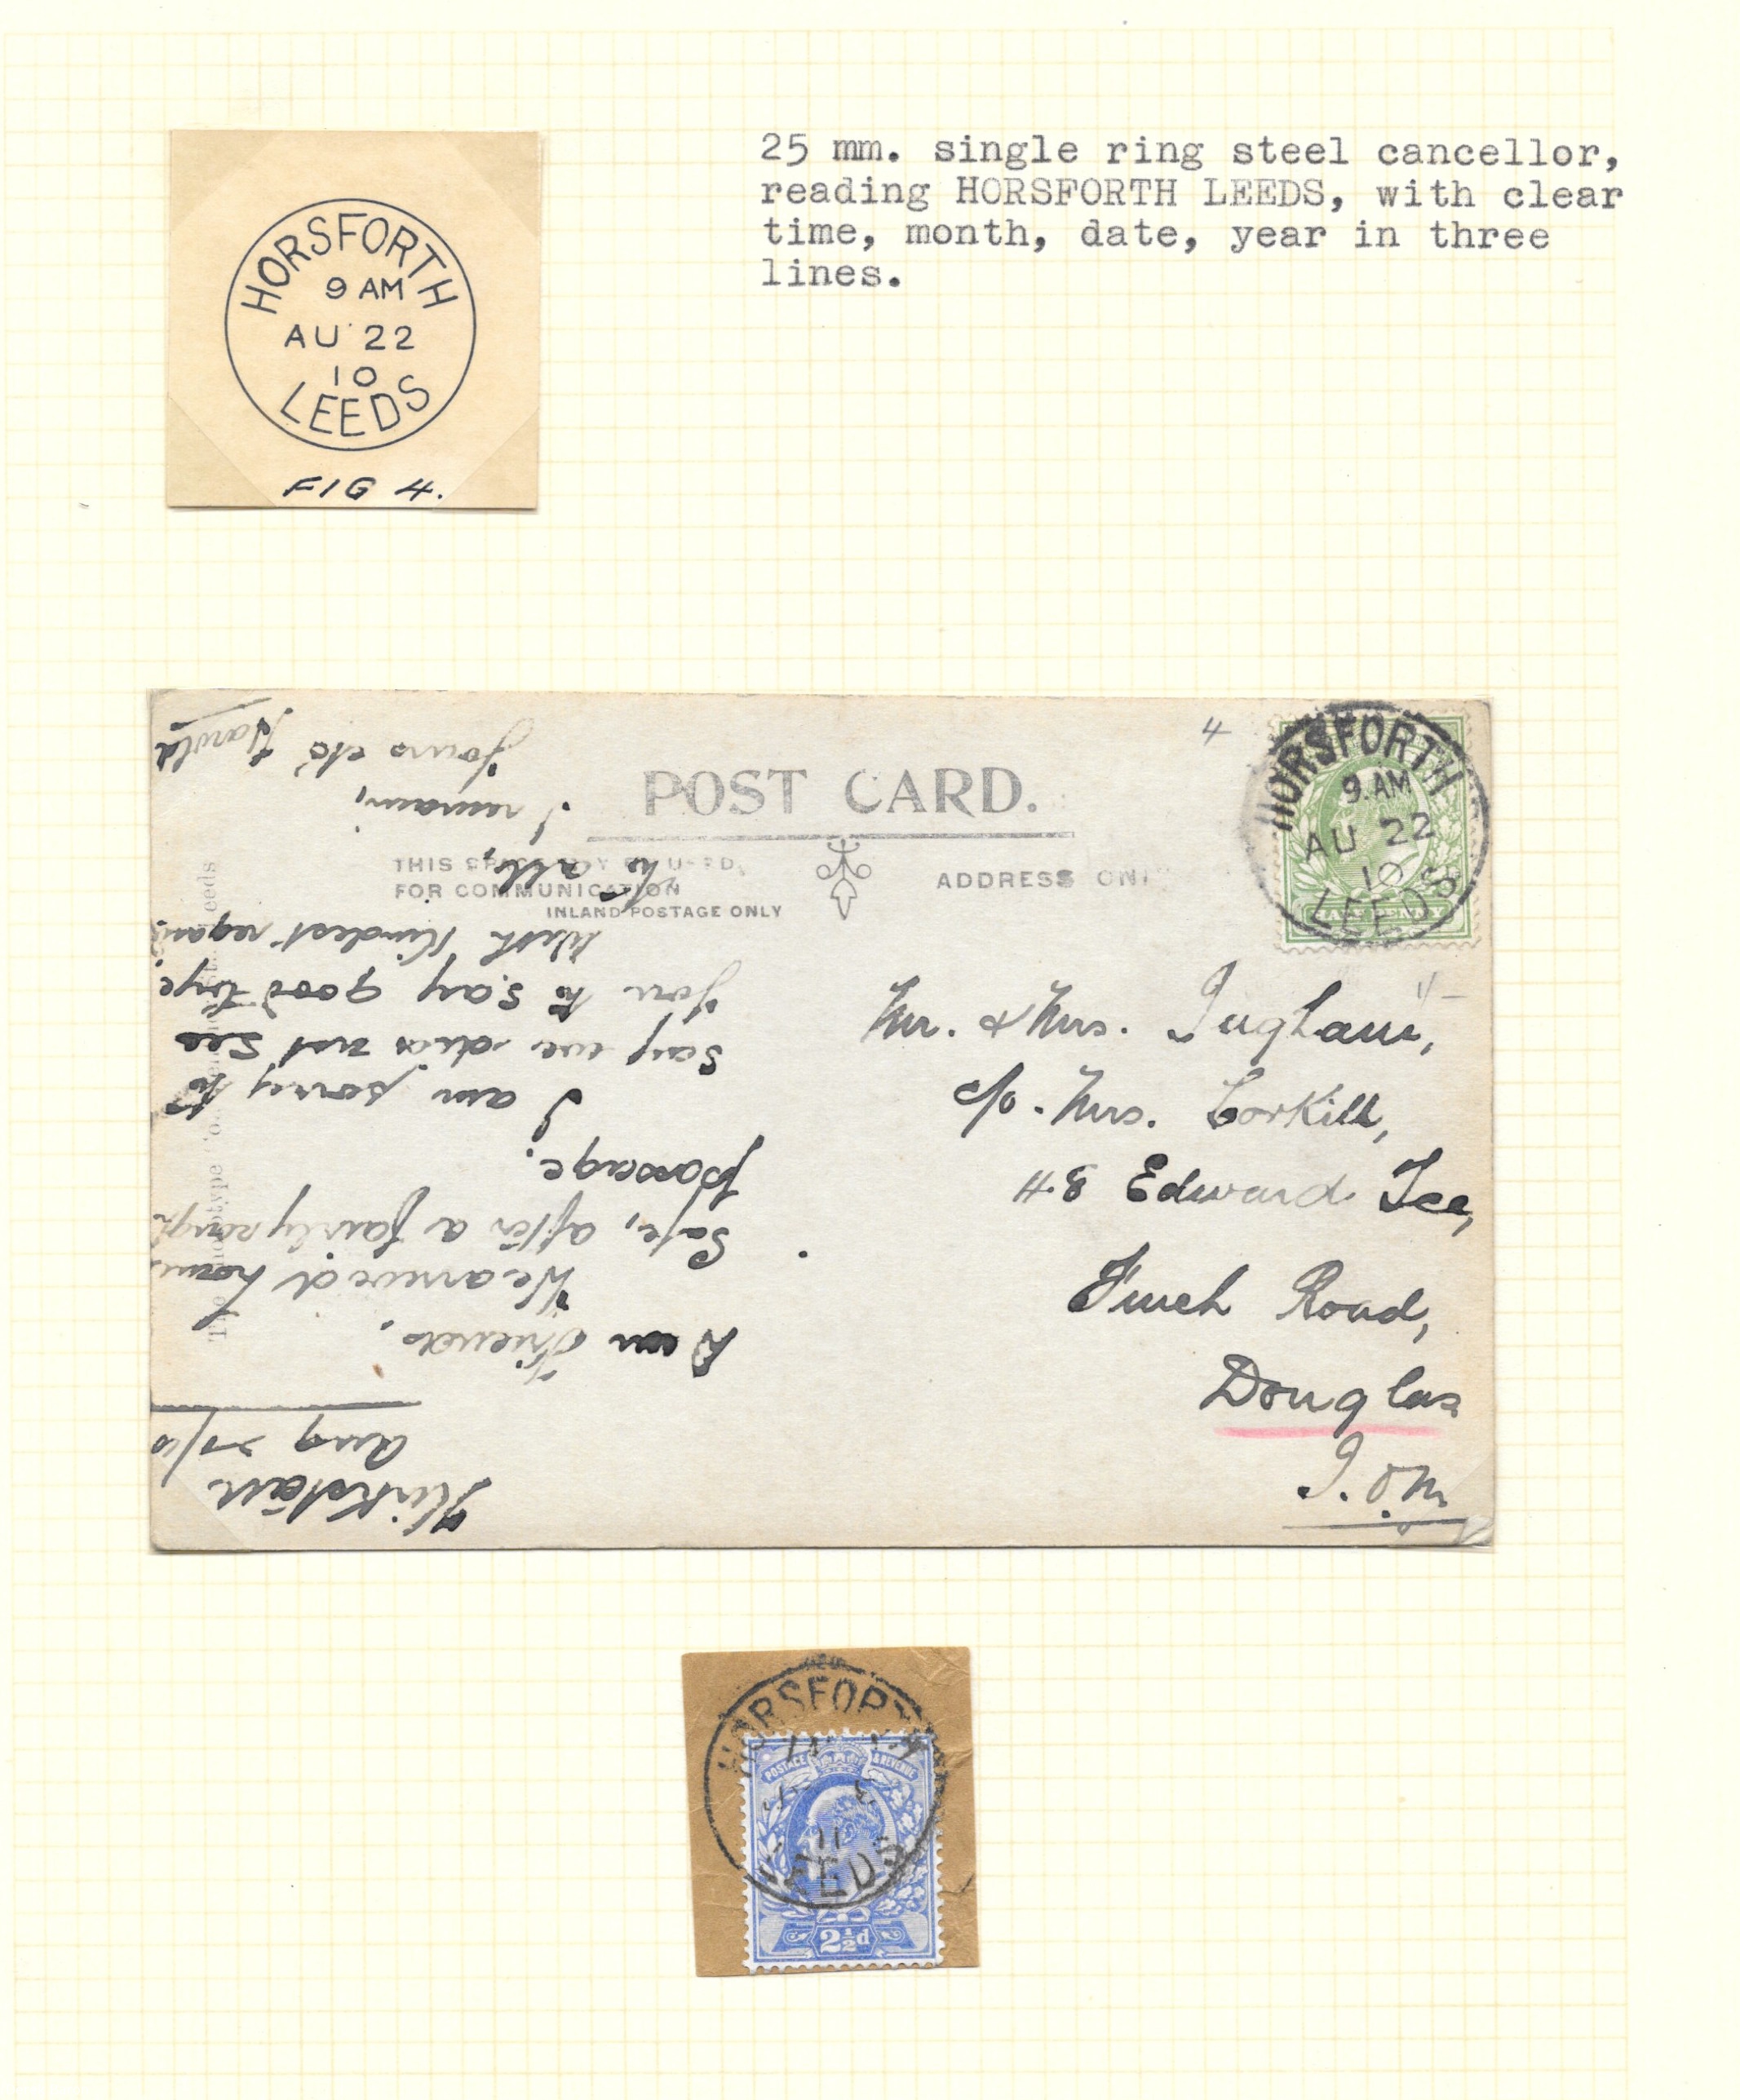 25 mm. single ring steel cancellor,
reading HORSFORTH LEEDS, with clear
time, month, date, year in three
lines.
HORSFORTH
9 AM
AU 22
10
LEEDS
FIG 4.
POST CARD.
THIS SPACE MAY BE USED
FOR COMMUNICATION
INLAND POSTAGE ONLY
ADDRESS ONLY
4
HORSFORTH
9. AM
AU 22
10
LEEDS
Mr. & Mrs. Ingham,
c/o. Mrs. Corkill,
48 Edward Tce,
Finch Road,
Douglas
I.O.M
Kirkstall
Aug
Dear Friends,
We arrived home
Safe, after a fairly rough
passage.
I am sorry to
say we did not see
you to say good bye.
With Kindest regards
to all,
I remain,
Yours etc Harold
HORSFORTH
11
LEEDS
POSTAGE & REVENUE
2½d